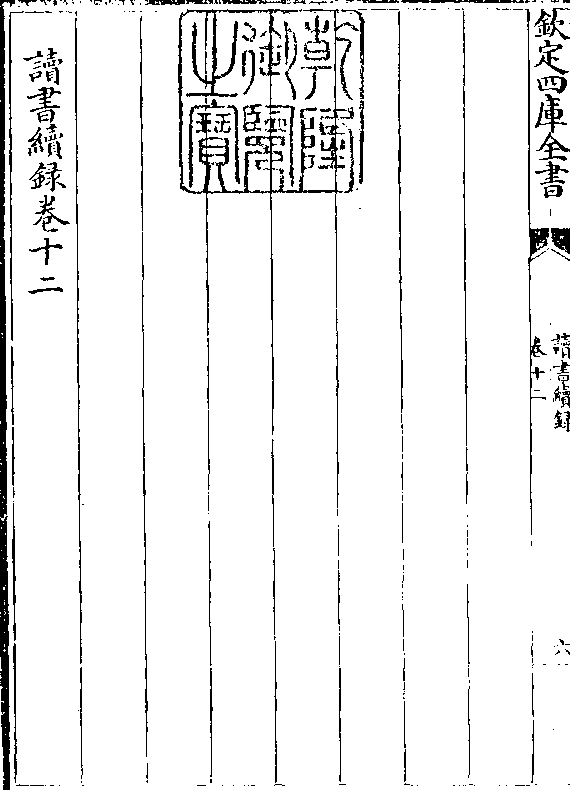 欽定四庫全書
讀書續録
卷十二
六
乾隆
御覽
之寶
讀書續録卷十二